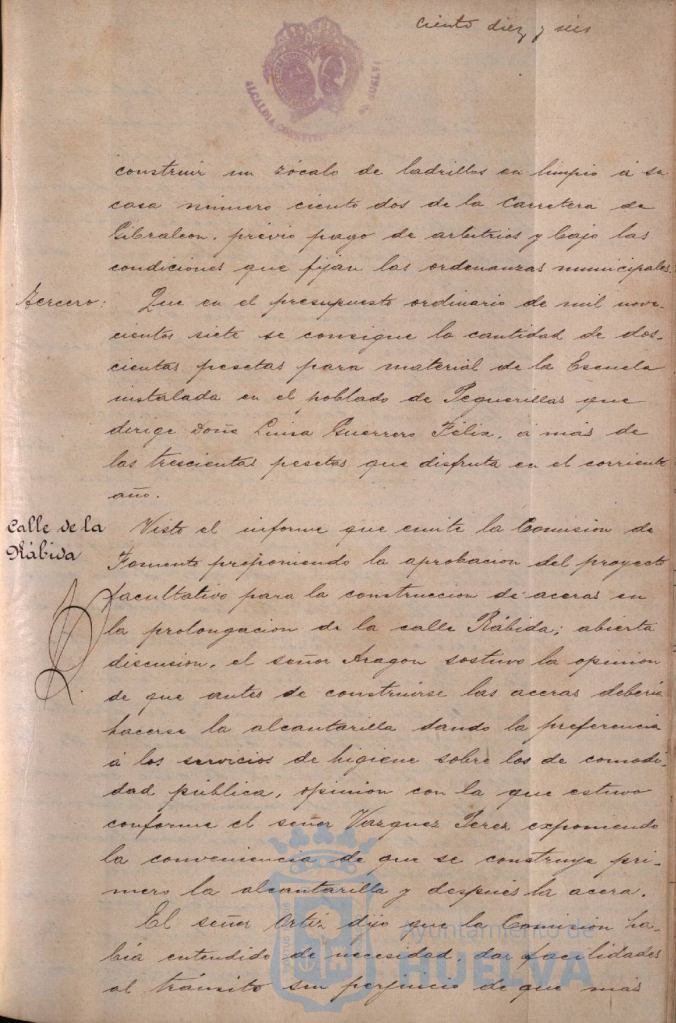 Ciento diez y seis
ALCALDIA CONSTITUCIONAL DE HUELVA
construir un zócalo de ladrillos en limpio á su
casa número ciento dos de la Carretera de
Gibraleon, prévio pago de arbitrios y bajo las
condiciones que fijan las ordenanzas municipales.
Tercero: Que en el presupuesto ordinario de mil nove-
cientos siete se consigne la cantidad de dos-
cientas pesetas para material de la Escuela
instalada en el poblado de Peguerillas que
dirige Doña Luisa Guerrero Félix, á más de
las trescientas pesetas que disfruta en el corriente
año.
Calle de la
Rábida
Visto el informe que emite la Comision de
Fomento proponiendo la aprobacion del proyecto
facultativo para la construccion de aceras en
la prolongacion de la calle Rábida; abierta
discusion, el señor Aragon sostuvo la opinion
de que antes de construirse las aceras deberia
hacerse la alcantarilla dando la preferencia
á los servicios de higiene sobre los de comodi-
dad pública, opinion con la que estuvo
conforme el señor Vazquez Perez exponiendo
la conveniencia de que se construya pri-
mero la alcantarilla y después la acera.
El señor Ortiz dijo que la Comision ha-
bía entendido de necesidad, dar facilidades
al tránsito sin perjuicio de que más
Ayuntamiento de
HUELVA